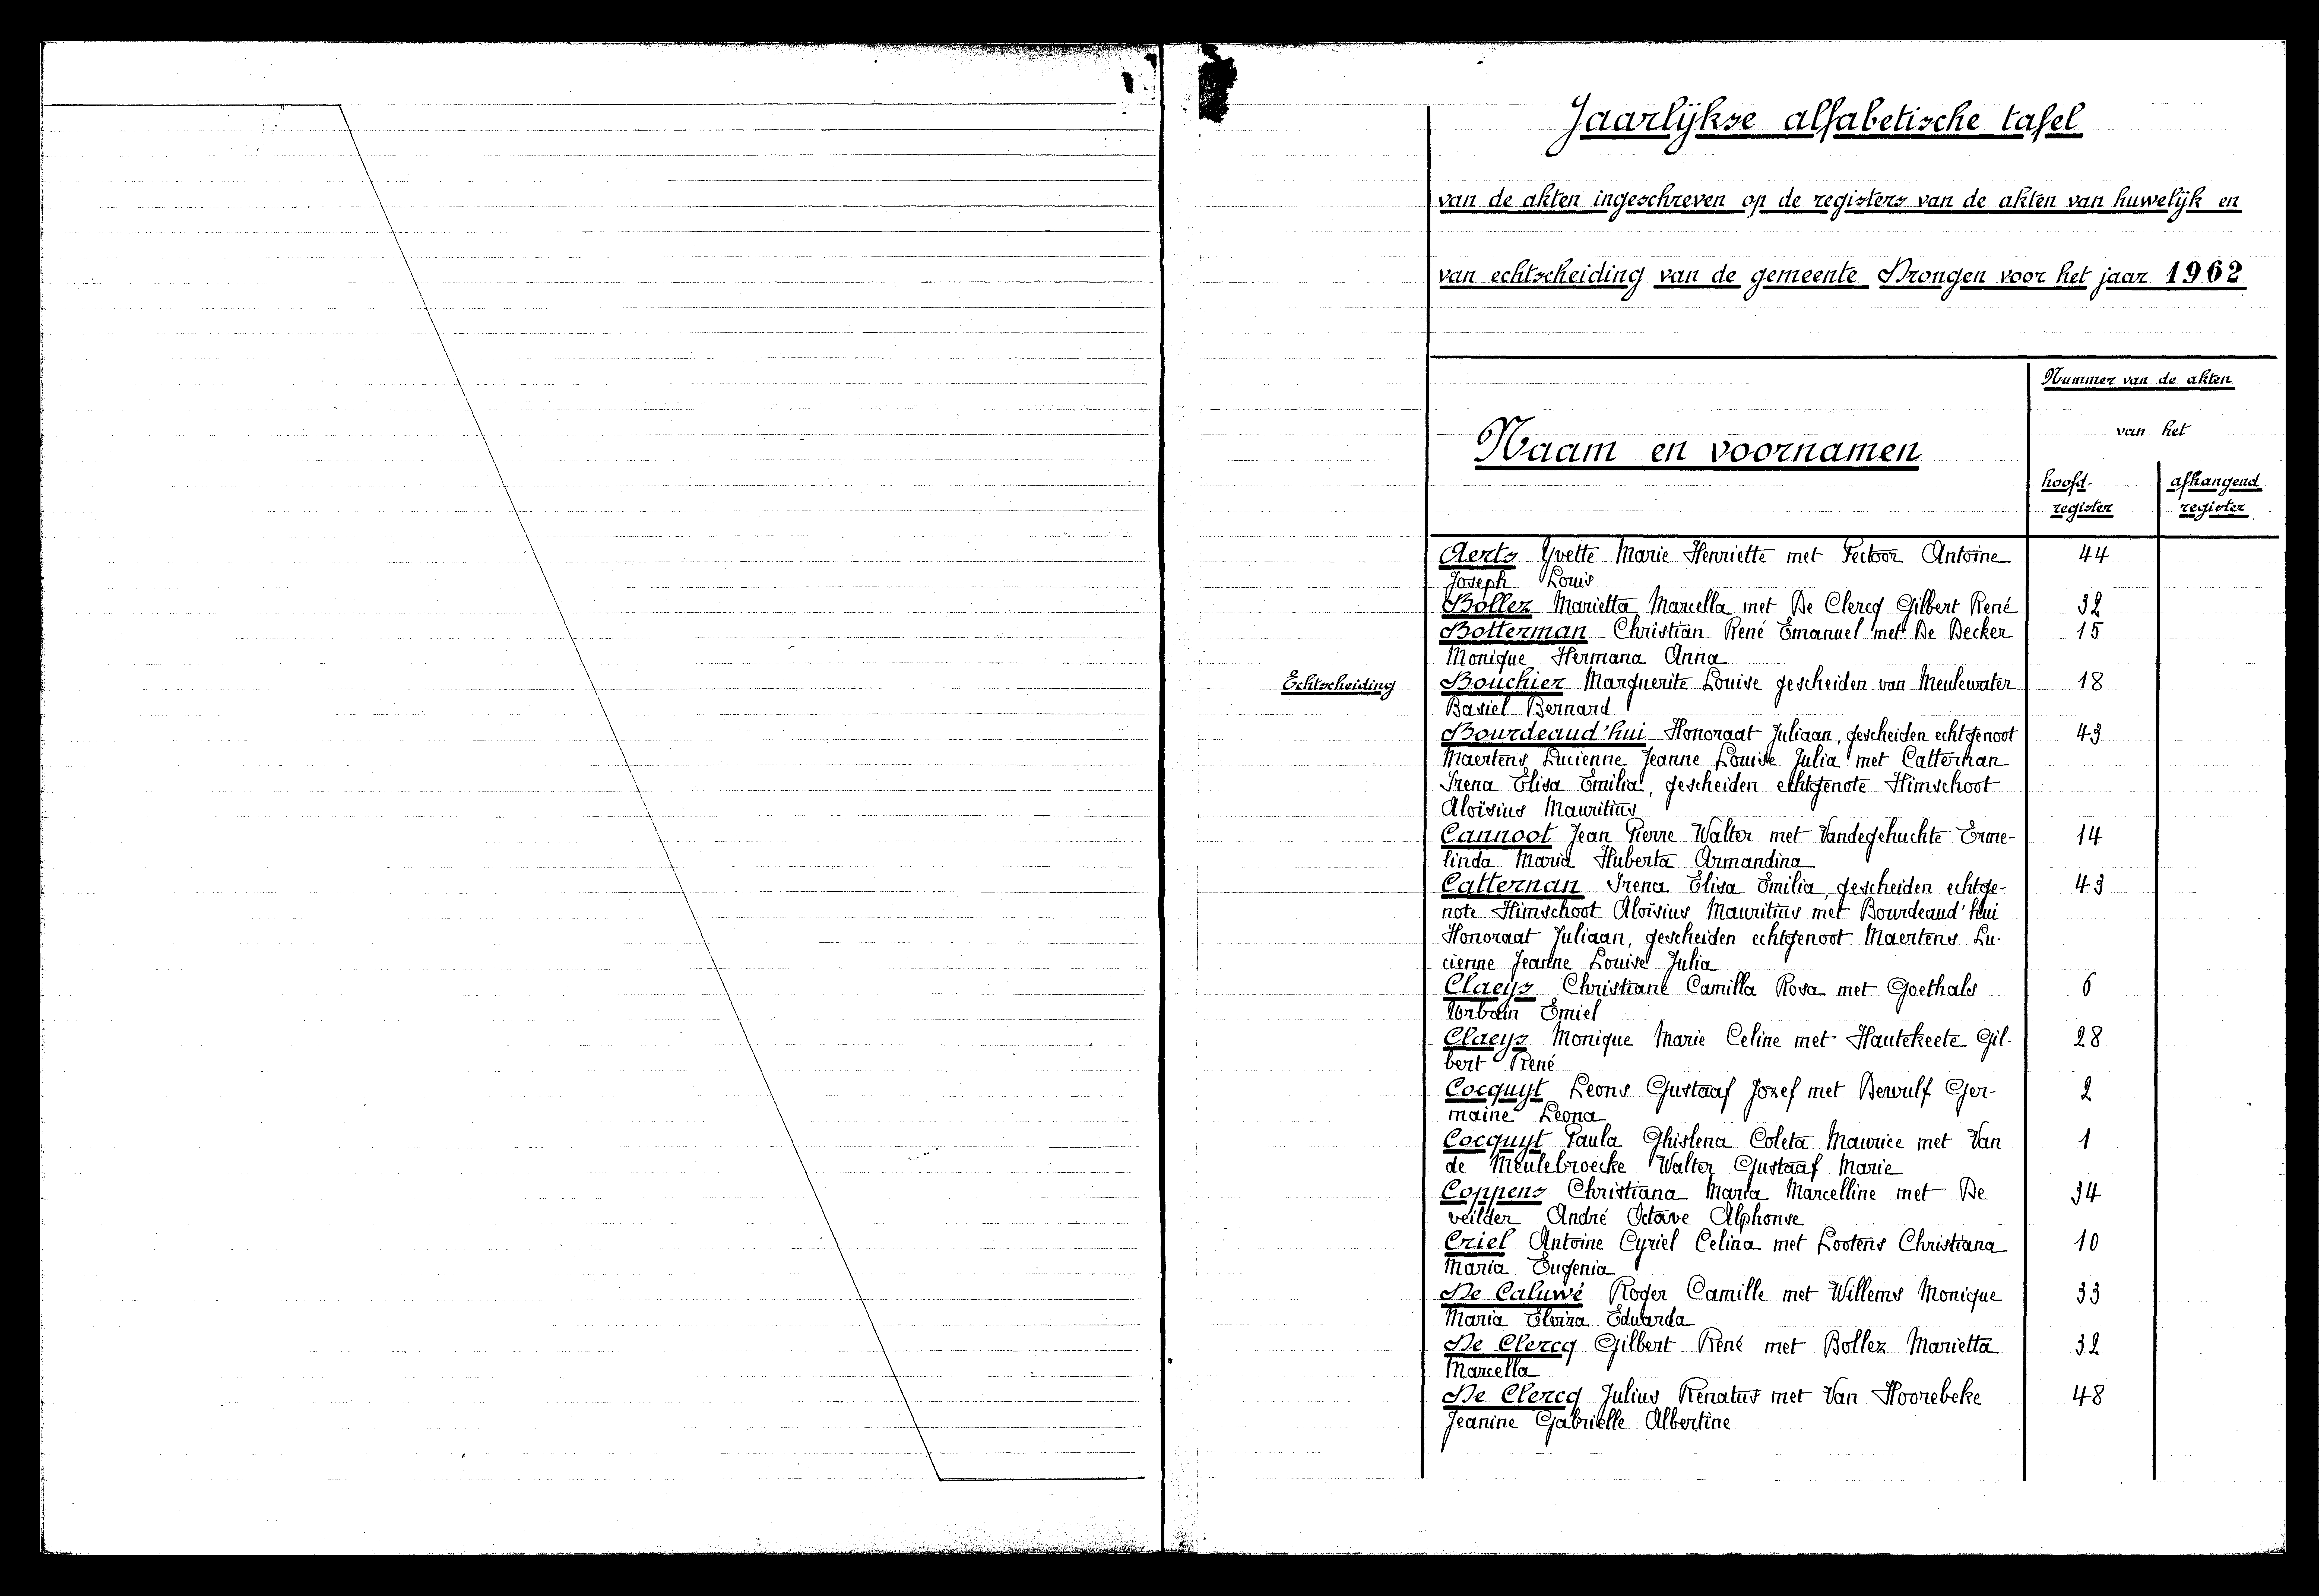 Jaarlijkse alfabetische tafel
van de akten ingeschreven op de registers van de akten van huwelijk en
van echtscheiding van de gemeente Drongen voor het jaar 1962
Nummer van de akten
van het
Naam en voornamen
hoofd- afhangend
register register
Aerts Yvette Marie Henriette met Pectoor Antoine 44
Joseph Louis
Bollez Marietta Marcella met De Clercq Gilbert René 32
Botterman Christian René Emanuel met De Decker 15
Monique Hermana Anna
Echtscheiding Bouchier Marguerite Louise gescheiden van Meulewater 18
Basiel Bernard
Bourdeaud'hui Honoraat Juliaan, gescheiden echtgenoot 43
Maertens Lucienne Jeanne Louise Julia met Catternan
Irena Elisa Emilia, gescheiden echtgenote Himschoot
Aloïsius Mauritius
Cannoot Jean Pierre Walter met Vandegehuchte Erme- 14
linda Maria Huberta Armandina
Catternan Irena Elisa Emilia, gescheiden echtge- 43
note Himschoot Aloïsius Mauritius met Bourdeaud'hui
Honoraat Juliaan, gescheiden echtgenoot Maertens Lu-
cienne Jeanne Louise Julia
Claeys Christiane Camilla Rosa met Goethals 6
Urbain Emiel
Claeys Monique Marie Celine met Hautekeete Gil- 28
bert René
Cocquyt Leons Gustaaf Jozef met Dewulf Ger- 2
maine Leona
Cocquyt Paula Ghislena Coleta Maurice met Van 1
de Meulebroecke Walter Gustaaf Marie
Coppens Christiana Maria Marcelline met De 34
veilder André Octave Alphonse
Criel Antoine Cyriel Celina met Lootens Christiana 10
Maria Eugenia
De Caluwé Roger Camille met Willems Monique 33
Maria Elvira Eduarda
De Clercq Gilbert René met Bollez Marietta 32
Marcella
De Clercq Julius Renatus met Van Hoorebeke 48
Jeanine Gabrielle Albertine